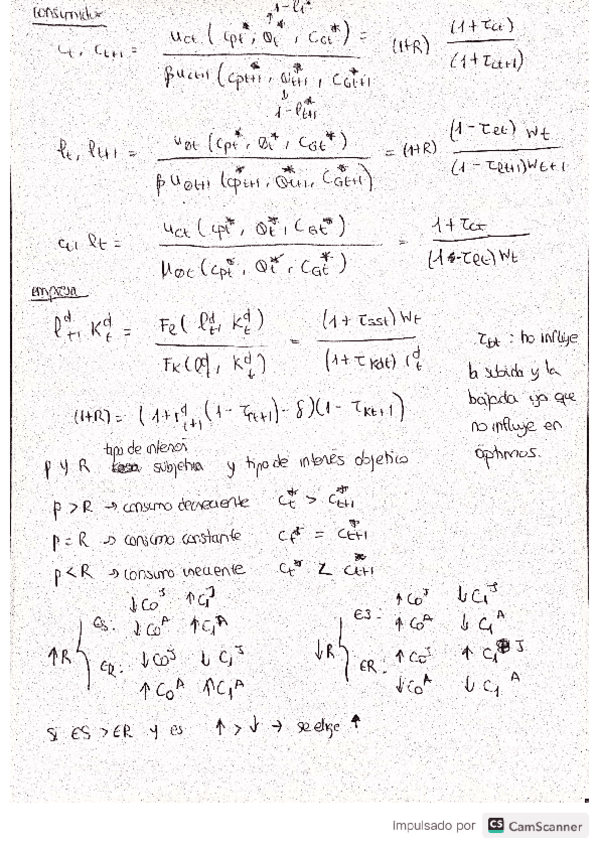 consumidor
1-lt*
ct, ct+1 = uct (cpt*, Θt*, cGt*) / βuct+1 (cpt+1*, Θt+1*, cGt+1*) = (1+R) (1+τct) / (1+τct+1)
1-lt+1*
lt, lt+1 = uΘt (cpt*, Θt*, cGt*) / βuΘt+1 (cpt+1*, Θt+1*, cGt+1*) = (1+R) (1-τlt) wt / (1-τlt+1)wt+1
ct, lt = uct (cpt*, Θt*, cGt*) / uΘt (cpt*, Θt*, cGt*) = 1+τct / (1-τlt) wt
empresa
ltd, Ktd = Fl (ltd, Ktd) / FK (ltd, Ktd) = (1+τsst) wt / (1+τKdt) rtd
τbt : no influye
la subida y la
bajada ya que
no influye en
óptimos.
(1+R) = (1+rt+1d (1-τt+1) - δ)(1-τKt+1)
tipo de interés
ρ y R subjetiva y tipo de interés objetico
ρ > R → consumo decreciente ct* > ct+1*
ρ = R → consumo constante ct* = ct+1*
ρ < R → consumo creciente ct* < ct+1*
↑R { ES: ↓C0J ↑C1J
↓C0A ↑C1A
ER: ↓C0J ↓C1J
↑C0A ↑C1A
↓R { ES: ↑C0J ↓C1J
↑C0A ↓C1A
ER: ↑C0J ↑C1J
↓C0A ↓C1A
Si ES > ER y es ↑ > ↓ → se elige ↑
Impulsado por CS CamScanner